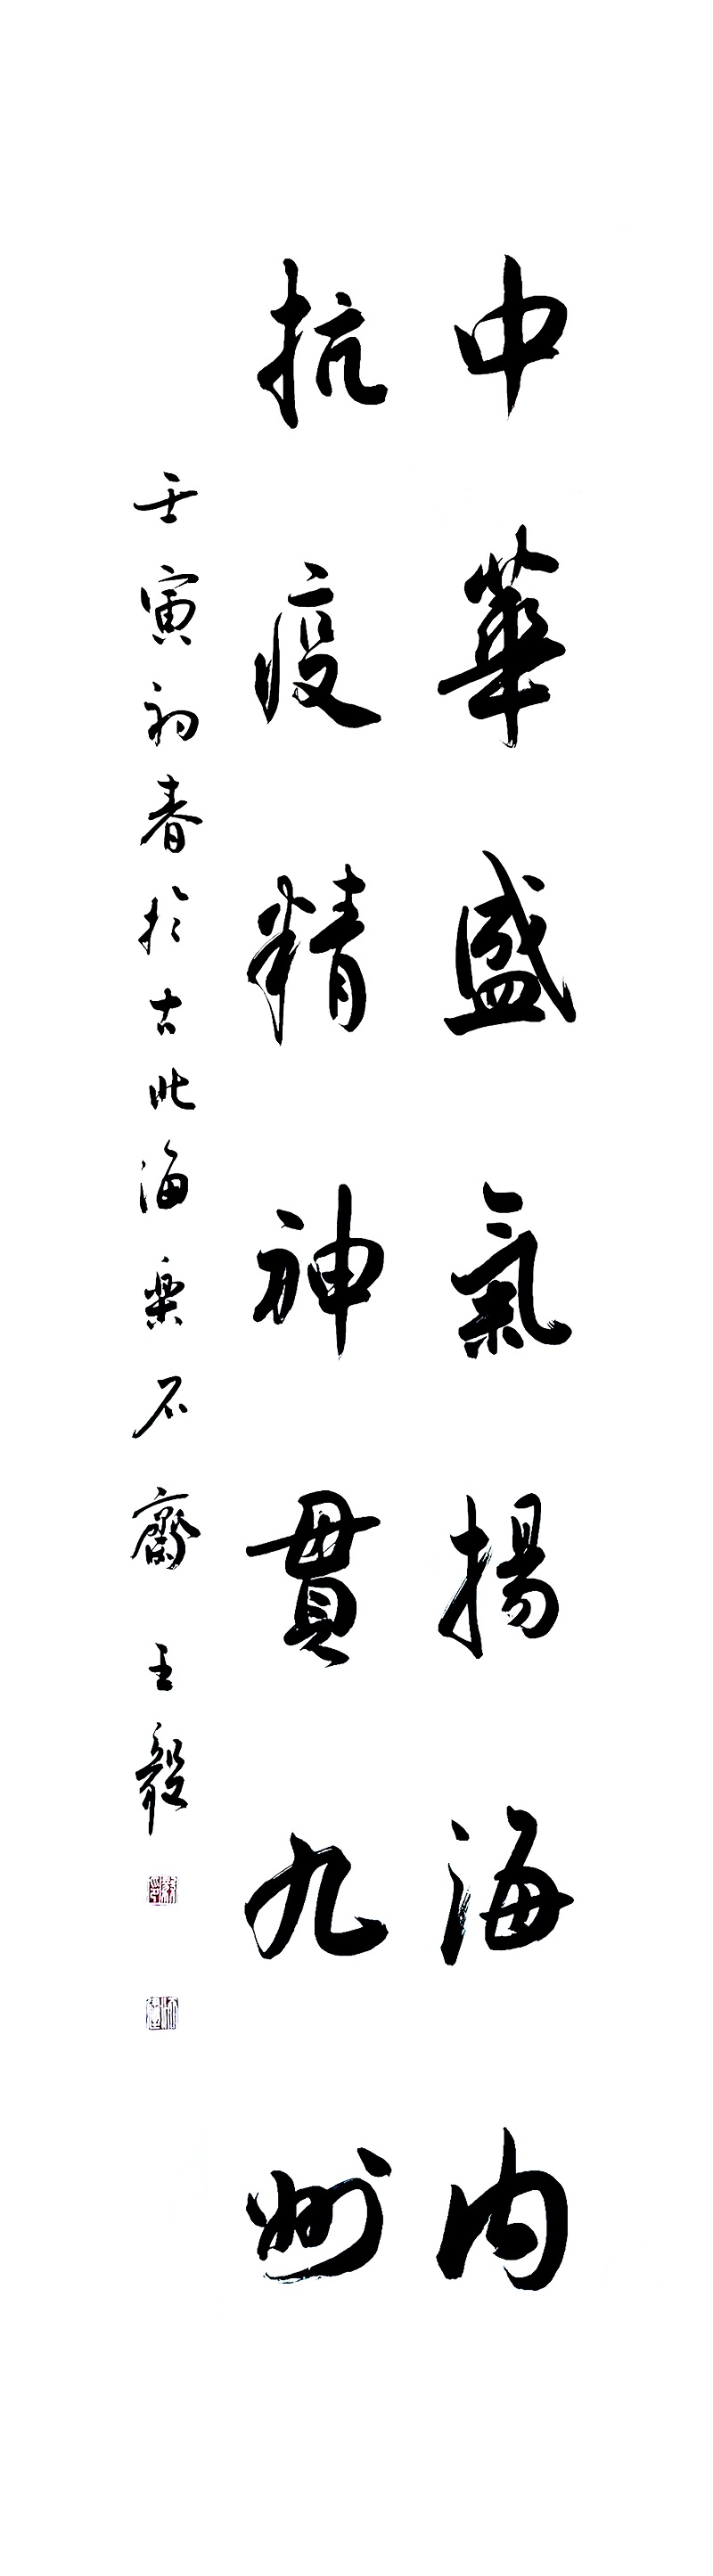 中華盛氣揚海内
抗疫精神貫九州
壬寅初春於古北海樂石齋 王毅